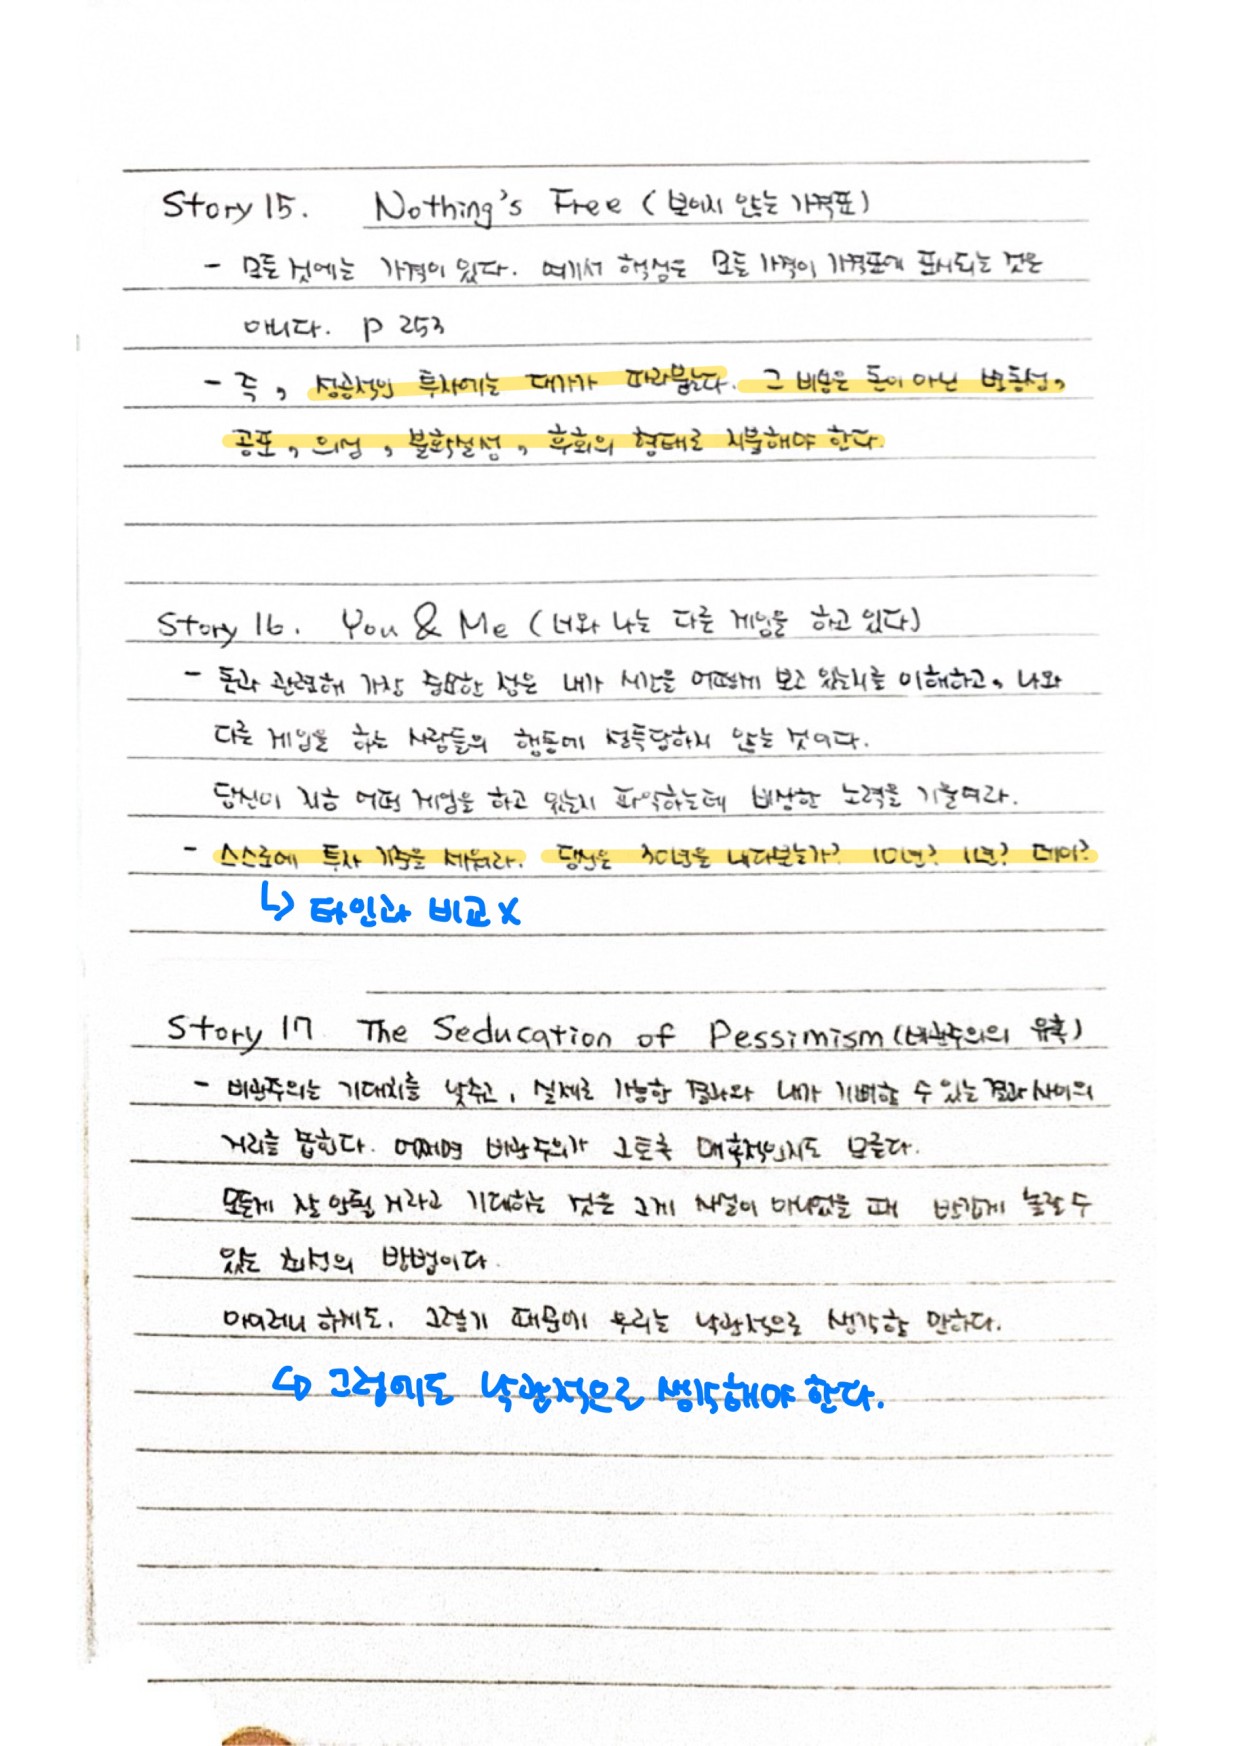 Story 15. Nothing's Free (보이지 않는 가격표)
- 모든 것에는 가격이 있다. 여기서 핵심은 모든 가격이 가격표에 표시되는 것은
아니다. p 253
- 즉, 성공적인 투자에는 대가가 따라붙는다. 그 비용은 돈이 아닌 변동성,
공포, 의심, 불확실성, 후회의 형태로 지불해야 한다.
Story 16. You & Me (너와 나는 다른 게임을 하고 있다)
- 돈과 관련해 가장 중요한 점은 내가 시간을 어떻게 보고 있는지를 이해하고, 나와
다른 게임을 하는 사람들의 행동에 설득당하지 않는 것이다.
당신이 지금 어떤 게임을 하고 있는지 파악하는데 비상한 노력을 기울여라.
- 스스로에 투자 기준을 세워라. 당신은 30년을 내다보는가? 10년? 1년? 데이?
↳ 타인과 비교 X
Story 17 The Seducation of Pessimism (비관주의의 유혹)
- 비관주의는 기대치를 낮추고, 실제로 가능한 결과와 내가 기뻐할 수 있는 결과 사이의
거리를 좁힌다. 어쩌면 비관주의가 그토록 매혹적인지도 모른다.
모든게 잘 안될 거라고 기대하는 것은 그게 사실이 아니었을 때 반갑게 놀랄 수
있는 최선의 방법이다.
아이러니 하게도. 그렇기 때문에 우리는 낙관적으로 생각할 만하다.
↳ 그럼에도 낙관적으로 생각해야 한다.